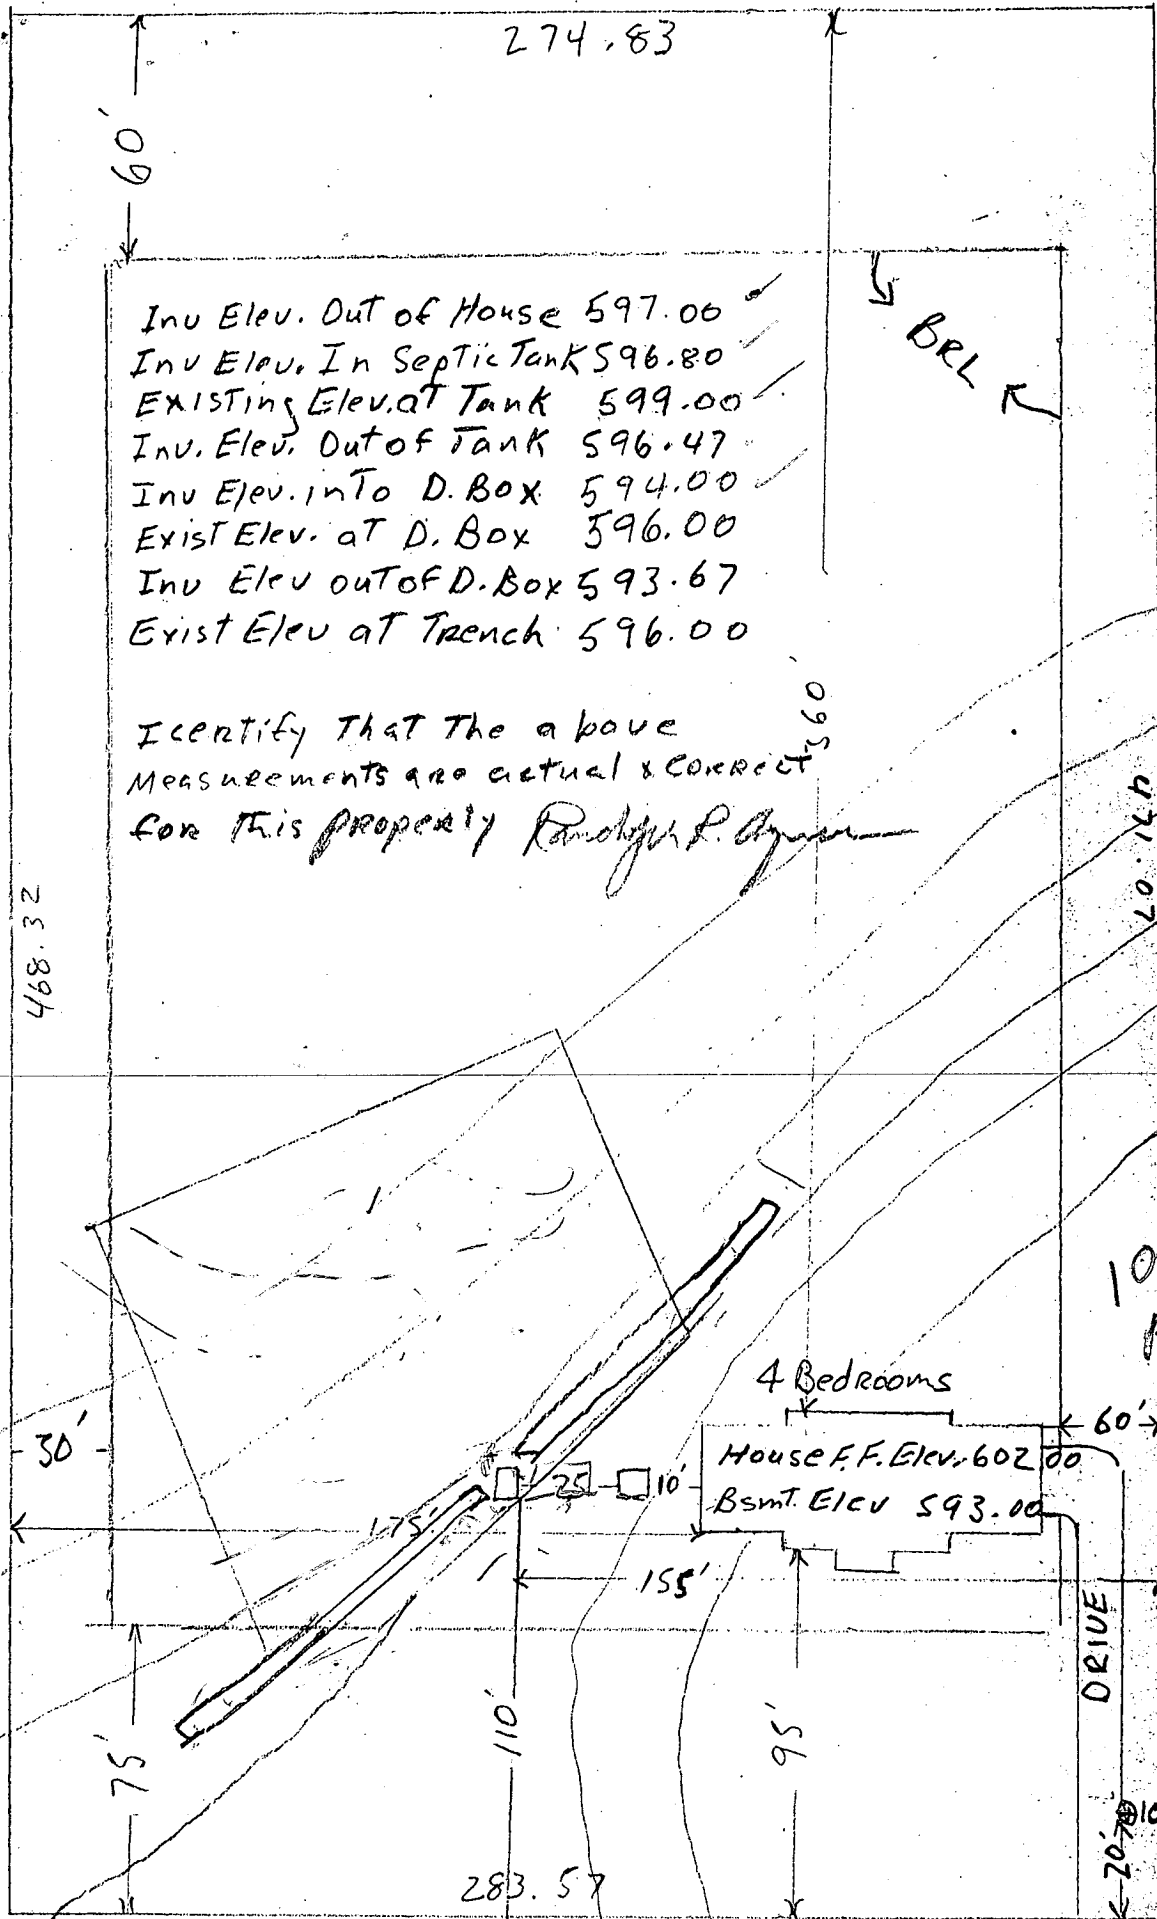 274.83
60'
Inv Elev. Out of House 597.00
Inv Elev. In Septic Tank 596.80
Existing Elev. at Tank 599.00
Inv. Elev. Out of Tank 596.47
Inv Elev. into D. Box 594.00
Exist Elev. at D. Box 596.00
Inv Elev out of D. Box 593.67
Exist Elev at Trench 596.00
BRL
I certify That The above
Measurements are actual & correct
for This Property
360'
468.32
471.07
10
4 Bedrooms
30'
60'
House F.F. Elev. 602.00
Bsmt. Elev 593.00
25
10'
175'
155'
DRIVE
75'
110'
95'
20'
283.57